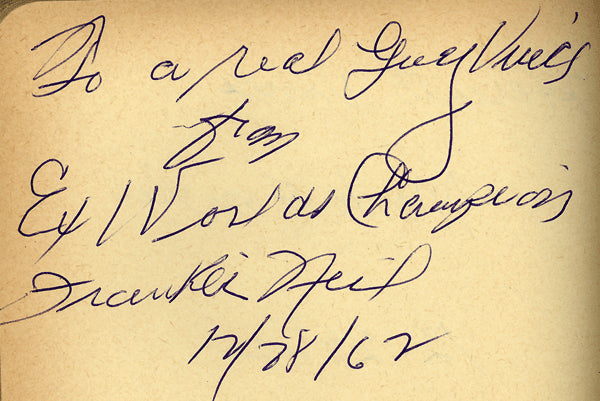 To a real Guy Vince
from
Ex Worlds Champion
Frankie Neil
12/28/62